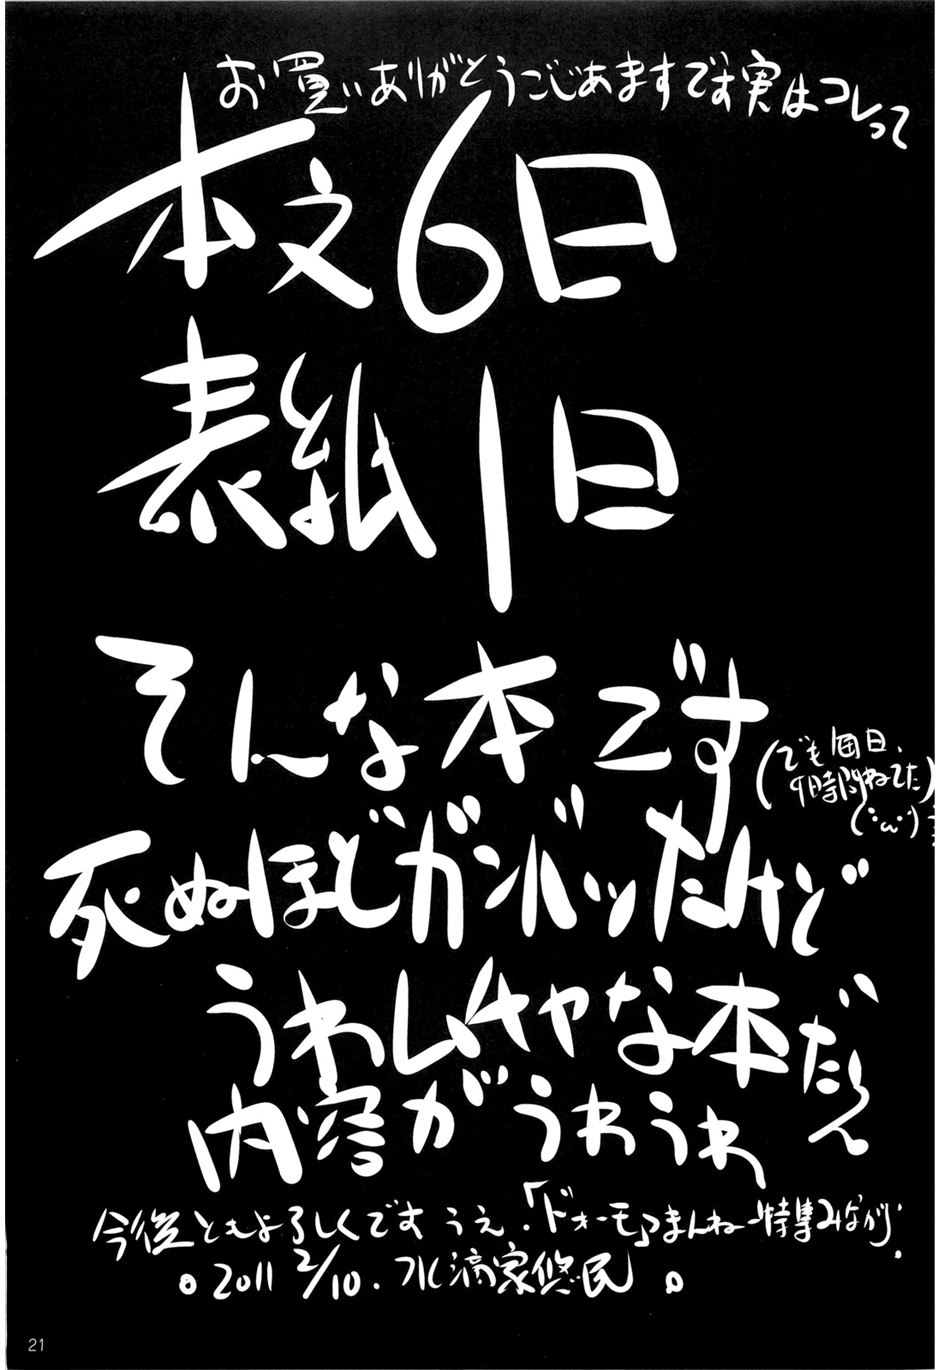 お買いありがとうごじあますです実はコレって
本文6日
表紙1日
そんな本です
(でも毎日、
9時間ねてた)
(・ω・)
死ぬほどガンバッたけど
うわムチャな本だ〜
内容がうわうわ
今後ともよろしくですうえ.「ドォーモ」まんねー特集みながら.
。2011 2/10.水滴家悠民。
21